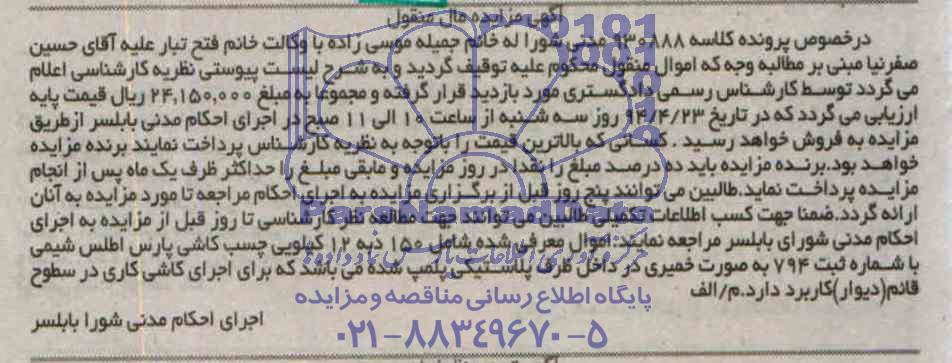 آگهی مزایده مال منقول
درخصوص پرونده کلاسه ۹۳۰۸۸۸ مدنی شورا له خانم جمیله موسی زاده با وکالت خانم فتح تبار علیه آقای حسین
صفرنیا مبنی بر مطالبه وجه که اموال منقول محکوم علیه توقیف گردید و به شرح لیست پیوستی نظریه کارشناسی اعلام
می گردد توسط کارشناس رسمی دادگستری مورد بازدید قرار گرفته و مجموعا به مبلغ ۲۴,۱۵۰,۰۰۰ ریال قیمت پایه
ارزیابی می گردد که در تاریخ ۹۴/۴/۲۳ روز سه شنبه از ساعت ۱۰ الی ۱۱ صبح در اجرای احکام مدنی بابلسر ازطریق
مزایده به فروش خواهد رسید . کسانی که بالاترین قیمت را باتوجه به نظریه کارشناس پرداخت نمایند برنده مزایده
خواهد بود.برنده مزایده باید ده درصد مبلغ را نقدا در روز مزایده و مابقی مبلغ را حداکثر ظرف یک ماه پس از انجام
مزایده پرداخت نماید.طالبین می توانند پنج روز قبل از برگزاری مزایده به اجرای احکام مراجعه تا مورد مزایده به آنان
ارائه گردد.ضمنا جهت کسب اطلاعات تکمیلی طالبین می توانند جهت مطالعه نظر کارشناسی تا روز قبل از مزایده به اجرای
احکام مدنی شورای بابلسر مراجعه نمایند:اموال معرفی شده شامل ۱۵۰ دبه ۱۲ کیلویی چسب کاشی پارس اطلس شیمی
با شماره ثبت ۷۹۴ به صورت خمیری در داخل ظرف پلاستیکی پلمپ شده می باشد که برای اجرای کاشی کاری در سطوح
قائم(دیوار)کاربرد دارد.م/الف
پایگاه اطلاع رسانی مناقصه و مزایده
اجرای احکام مدنی شورا بابلسر
۰۲۱-۸۸۳۴۹۶۷۰-۵